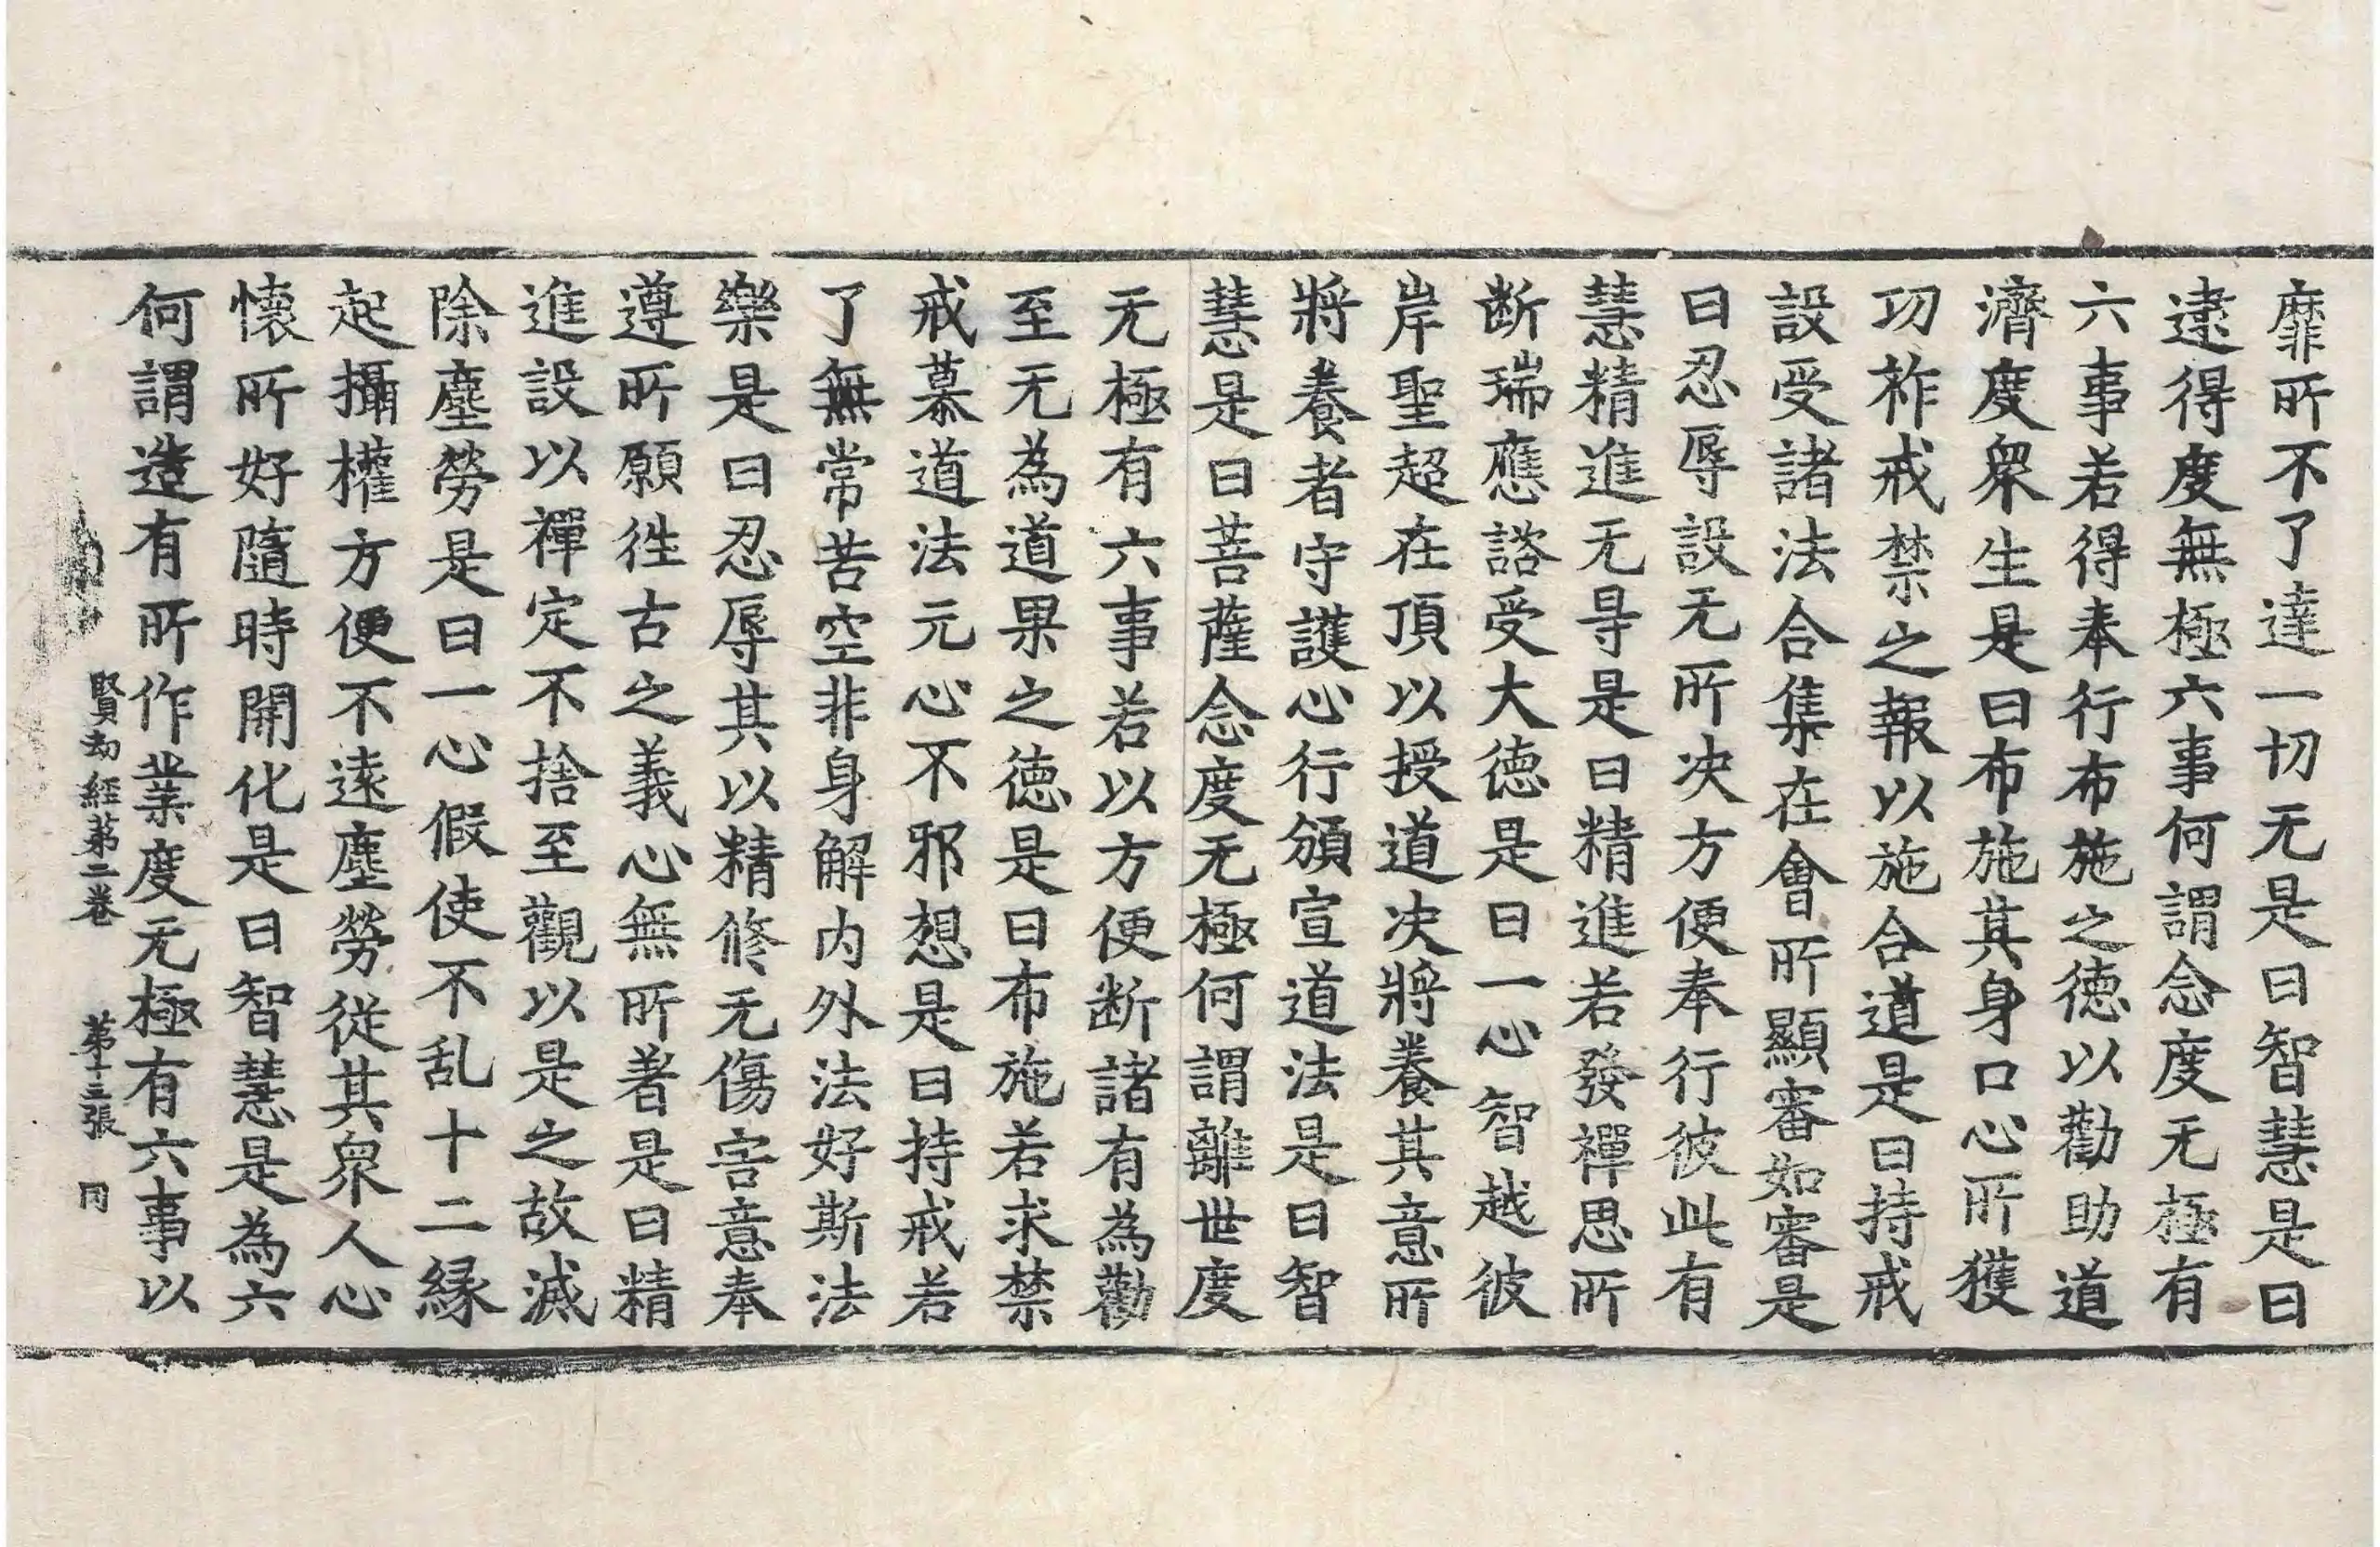 靡所不了達一切无是曰智慧是曰
逮得度無極六事何謂念度无極有
六事若得奉行布施之德以勸助道
濟度眾生是曰布施其身口心所獲
功祚戒禁之報以施合道是曰持戒
設受諸法合集在會所顯審如審是
曰忍辱設无所决方便奉行彼此有
慧精進无㝵是曰精進若發禪思所
断瑞應諮受大德是曰一心智越彼
岸聖超在頂以授道决將養其意所
將養者守護心行頒宣道法是曰智
慧是曰菩薩念度无極何謂離世度
无極有六事若以方便断諸有為勸
至无為道果之德是曰布施若求禁
戒慕道法元心不邪想是曰持戒若
了無常苦空非身解内外法好斯法
樂是曰忍辱其以精修无傷害意奉
遵所願徃古之義心無所著是曰精
進設以禪定不捨至觀以是之故滅
除塵勞是曰一心假使不乱十二縁
起攝權方便不遠塵勞從其眾人心
懷所好隨時開化是曰智慧是為六
何謂造有所作業度无極有六事以
賢劫經苐二卷　苐十三張　同